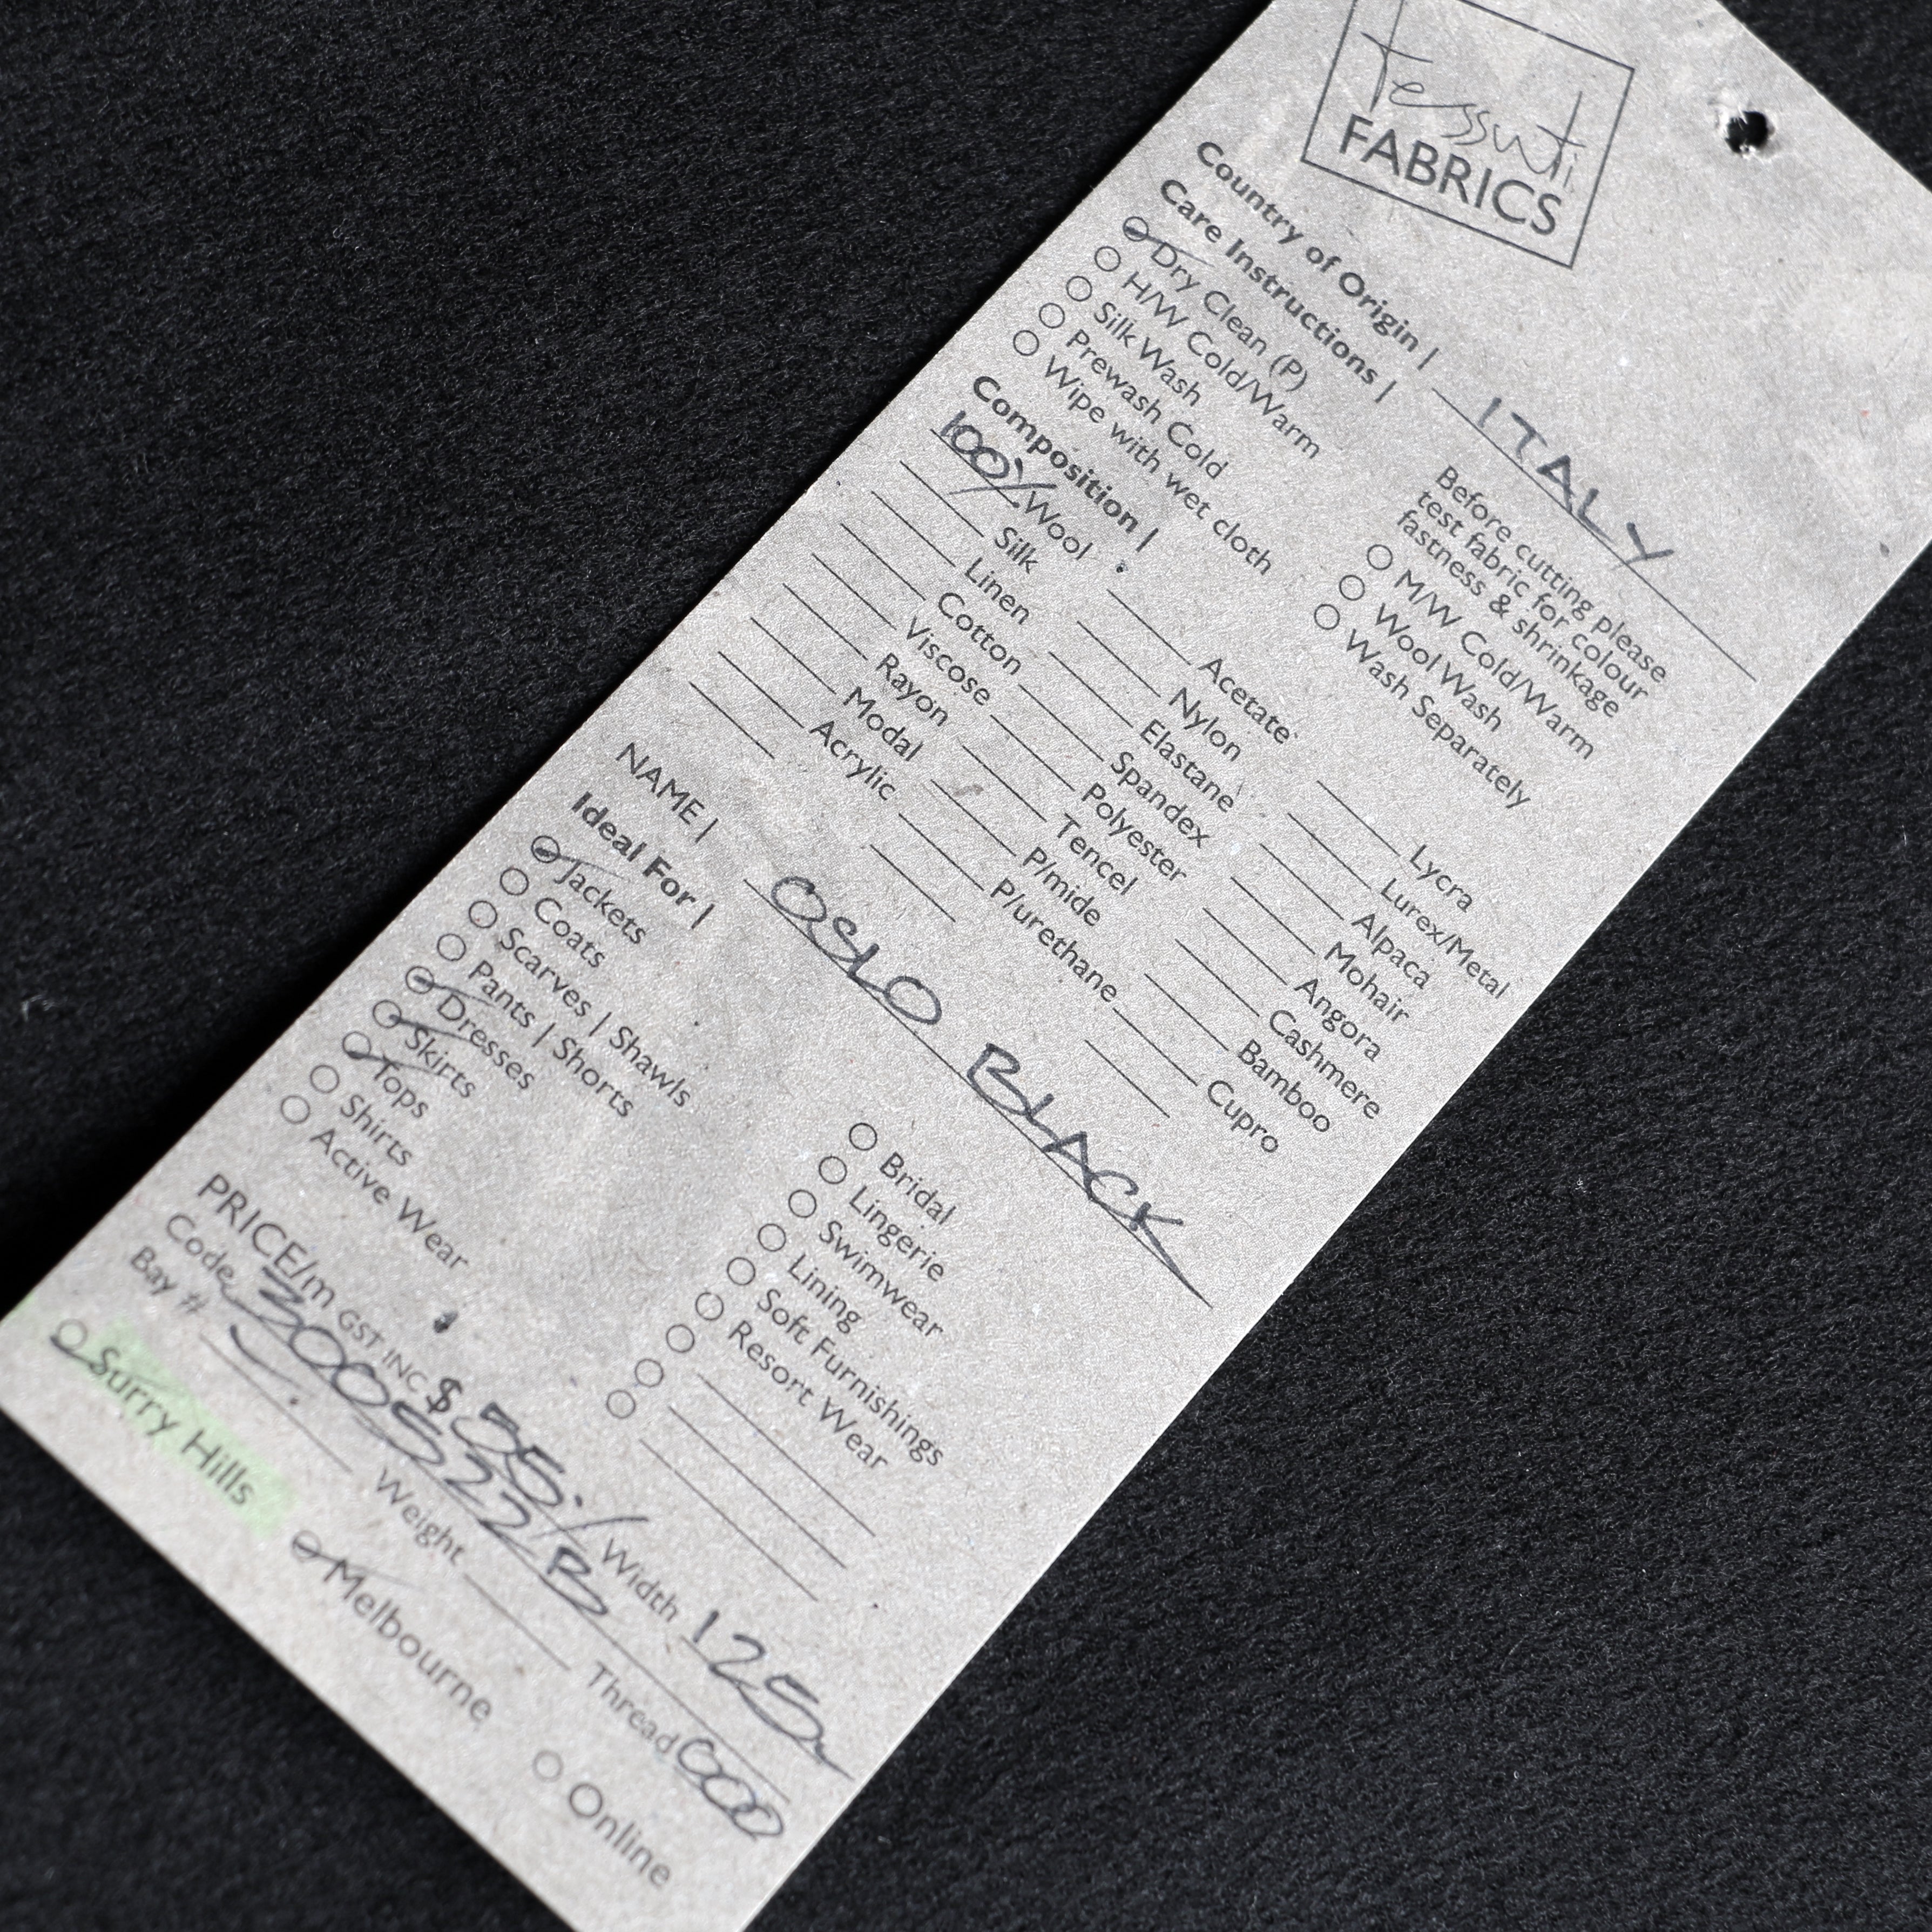 tessuti
FABRICS
Country of Origin | ITALY
Care Instructions |
Before cutting please
test fabric for colour
fastness & shrinkage
Dry Clean (P)
H/W Cold/Warm
Silk Wash
Prewash Cold
Wipe with wet cloth
M/W Cold/Warm
Wool Wash
Wash Separately
Composition |
100% Wool
Silk
Linen
Cotton
Viscose
Rayon
Modal
Acrylic
Acetate
Nylon
Elastane
Spandex
Polyester
Tencel
P/mide
P/urethane
Lycra
Lurex/Metal
Alpaca
Mohair
Angora
Cashmere
Bamboo
Cupro
NAME | OSLO BLACK
Ideal For |
Jackets
Coats
Scarves | Shawls
Pants | Shorts
Dresses
Skirts
Tops
Shirts
Active Wear
Bridal
Lingerie
Swimwear
Lining
Soft Furnishings
Resort Wear
PRICE/m GST INC $ 55. Width 125
Code 300522B
Bay # Weight Thread 000
Surry Hills Melbourne Online